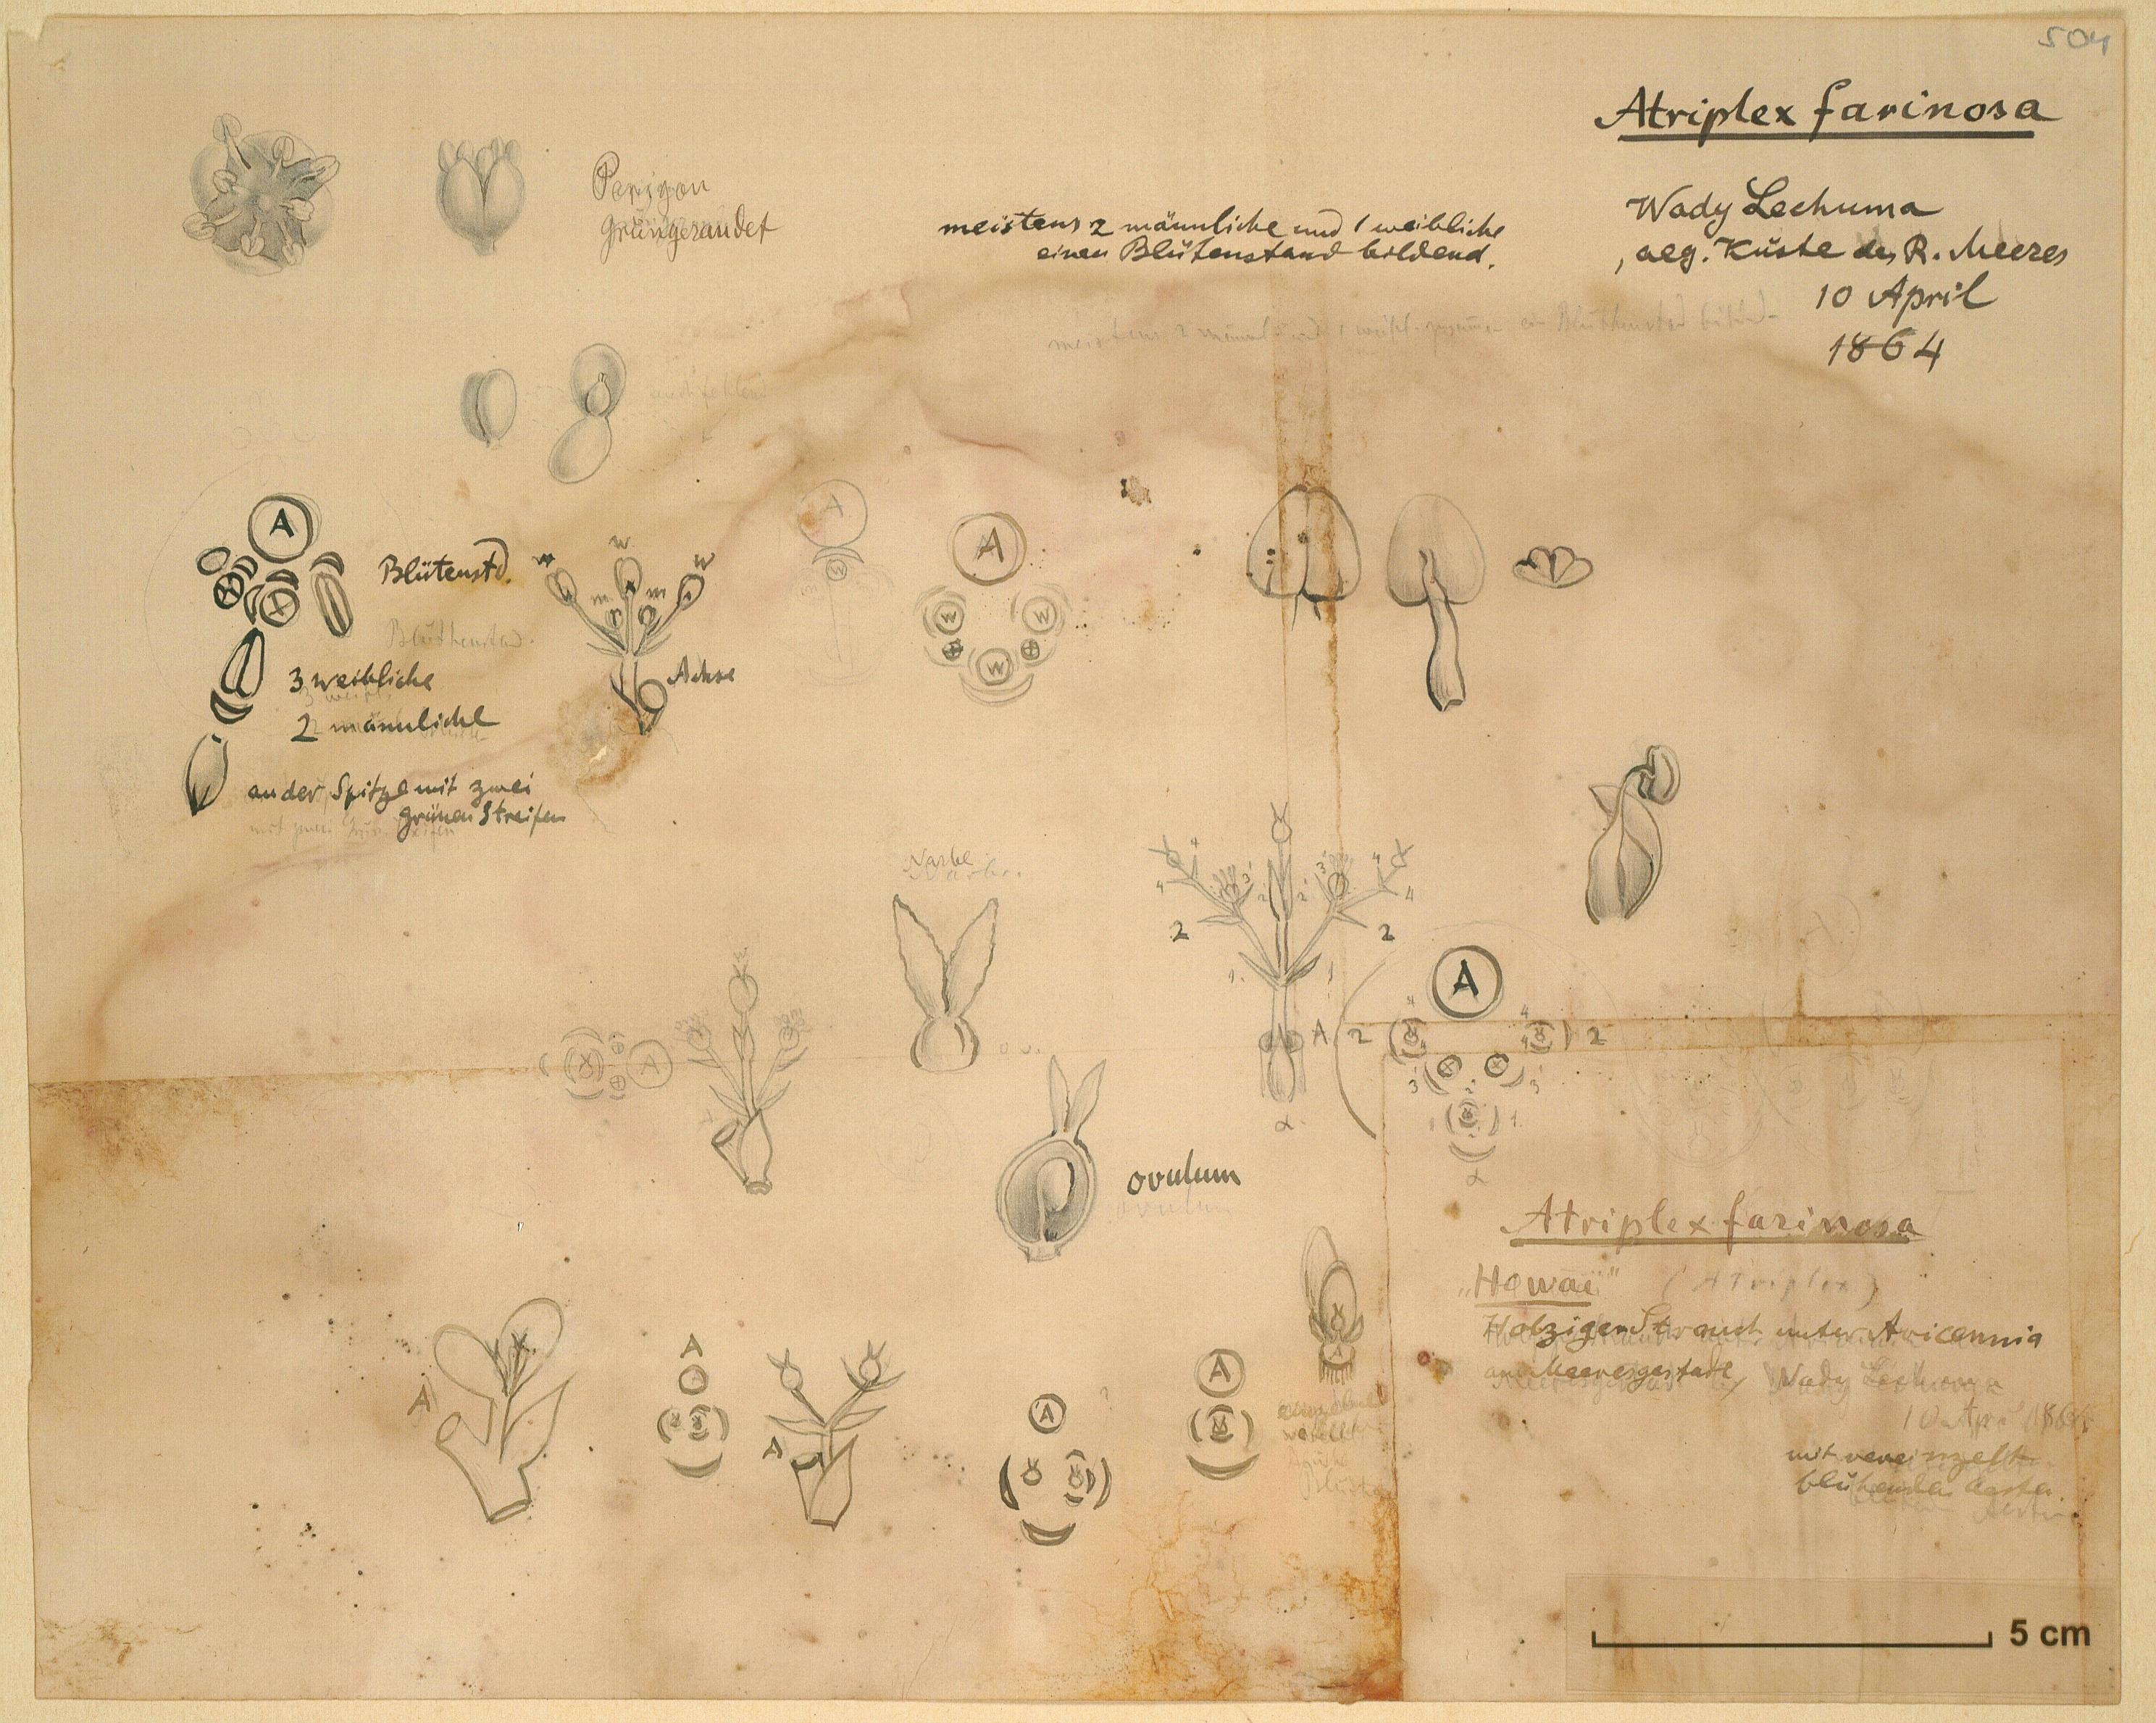 504
Atriplex farinosa
Wady Lechuma
, aeg. Küste des R. Meeres
10 April
1864
Perigon
grüngerandet
meistens 2 männliche und 1 weibliche
einen Blütenstand bildend.
meistens 2 männl. und 1 weibl. zusammen ein Blüthenstand bildend
A
Blütenstd.
Blüthenstand.
w w w
m m
Achse
3 weibliche
2 männliche
an der Spitze mit zwei
grünen Streifen
A
w
A
w w
w
Narbe
Narbe.
ov.
w
A
4 4 4 4
3 3
2 2 2 2
1. 1
A
α
A
4 4
2 2
4
3 3
2
1 1
α
ovulum
ovulum
Atriplex farinosa
„Hawai" (Atriplex)
Holziger Strauch unter Avicennia
am Meeresgestade Wady Lechuma
10 Apr 1864
mit vereinzelt
blühenden Aesten
A
A
A
A
?
A
weibliche
Blüthe
5 cm